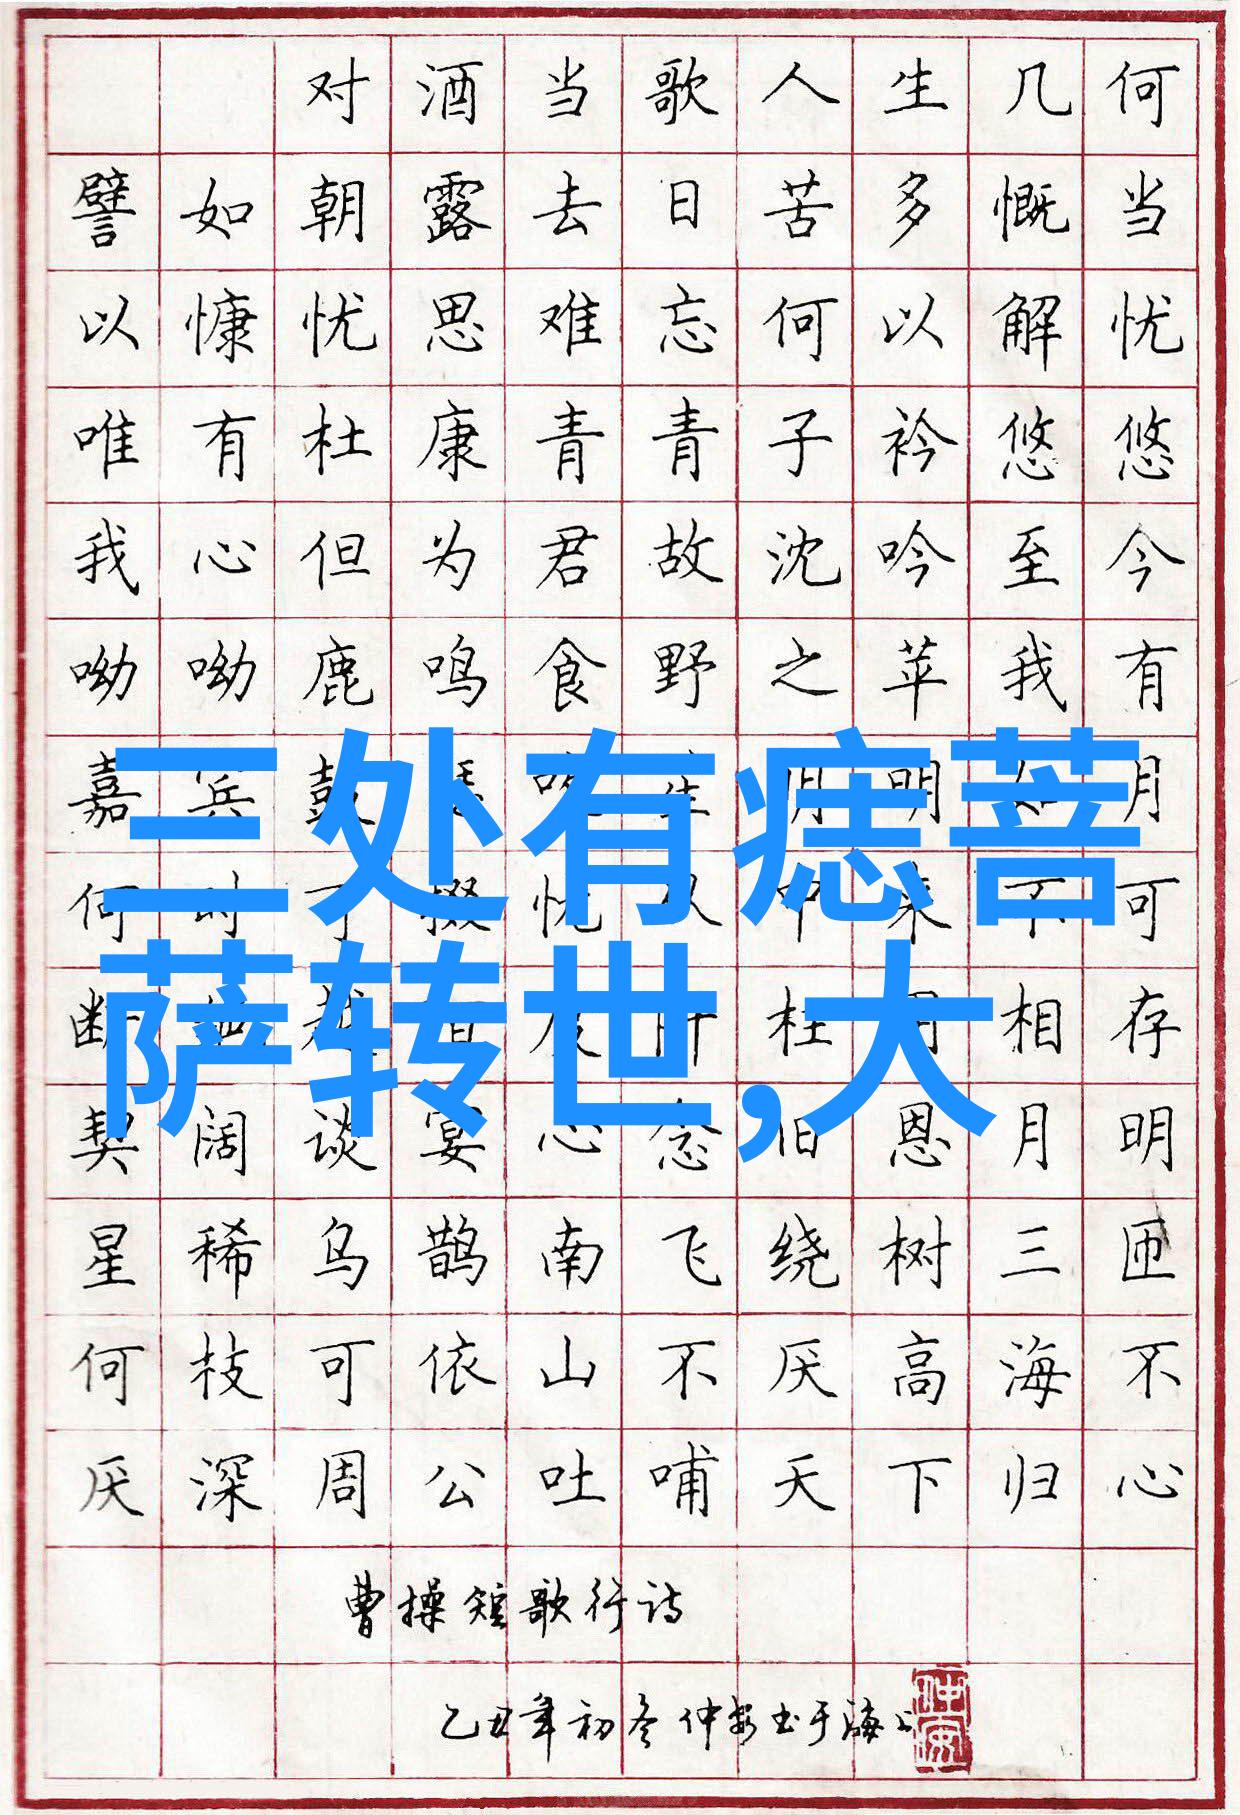 对酒当歌人生几何
譬如朝露去日苦多慨当
以慷忧思难忘何以解忧
唯有杜康青青子衿悠悠
我心但为君故沈吟至今
呦呦鹿鸣食野之苹我有
嘉宾鼓瑟吹笙明明如月
三处有痣菩
何时可掇忧从中来不可
萨转世,大
断绝越陌度阡枉用相存
契阔谈宴心念旧恩月明
星稀乌鹊南飞绕树三匝
何枝可依山不厌高海不
厌深周公吐哺天下归心
曹操短歌行诗
乙丑年初冬仲安书于海上
仲安